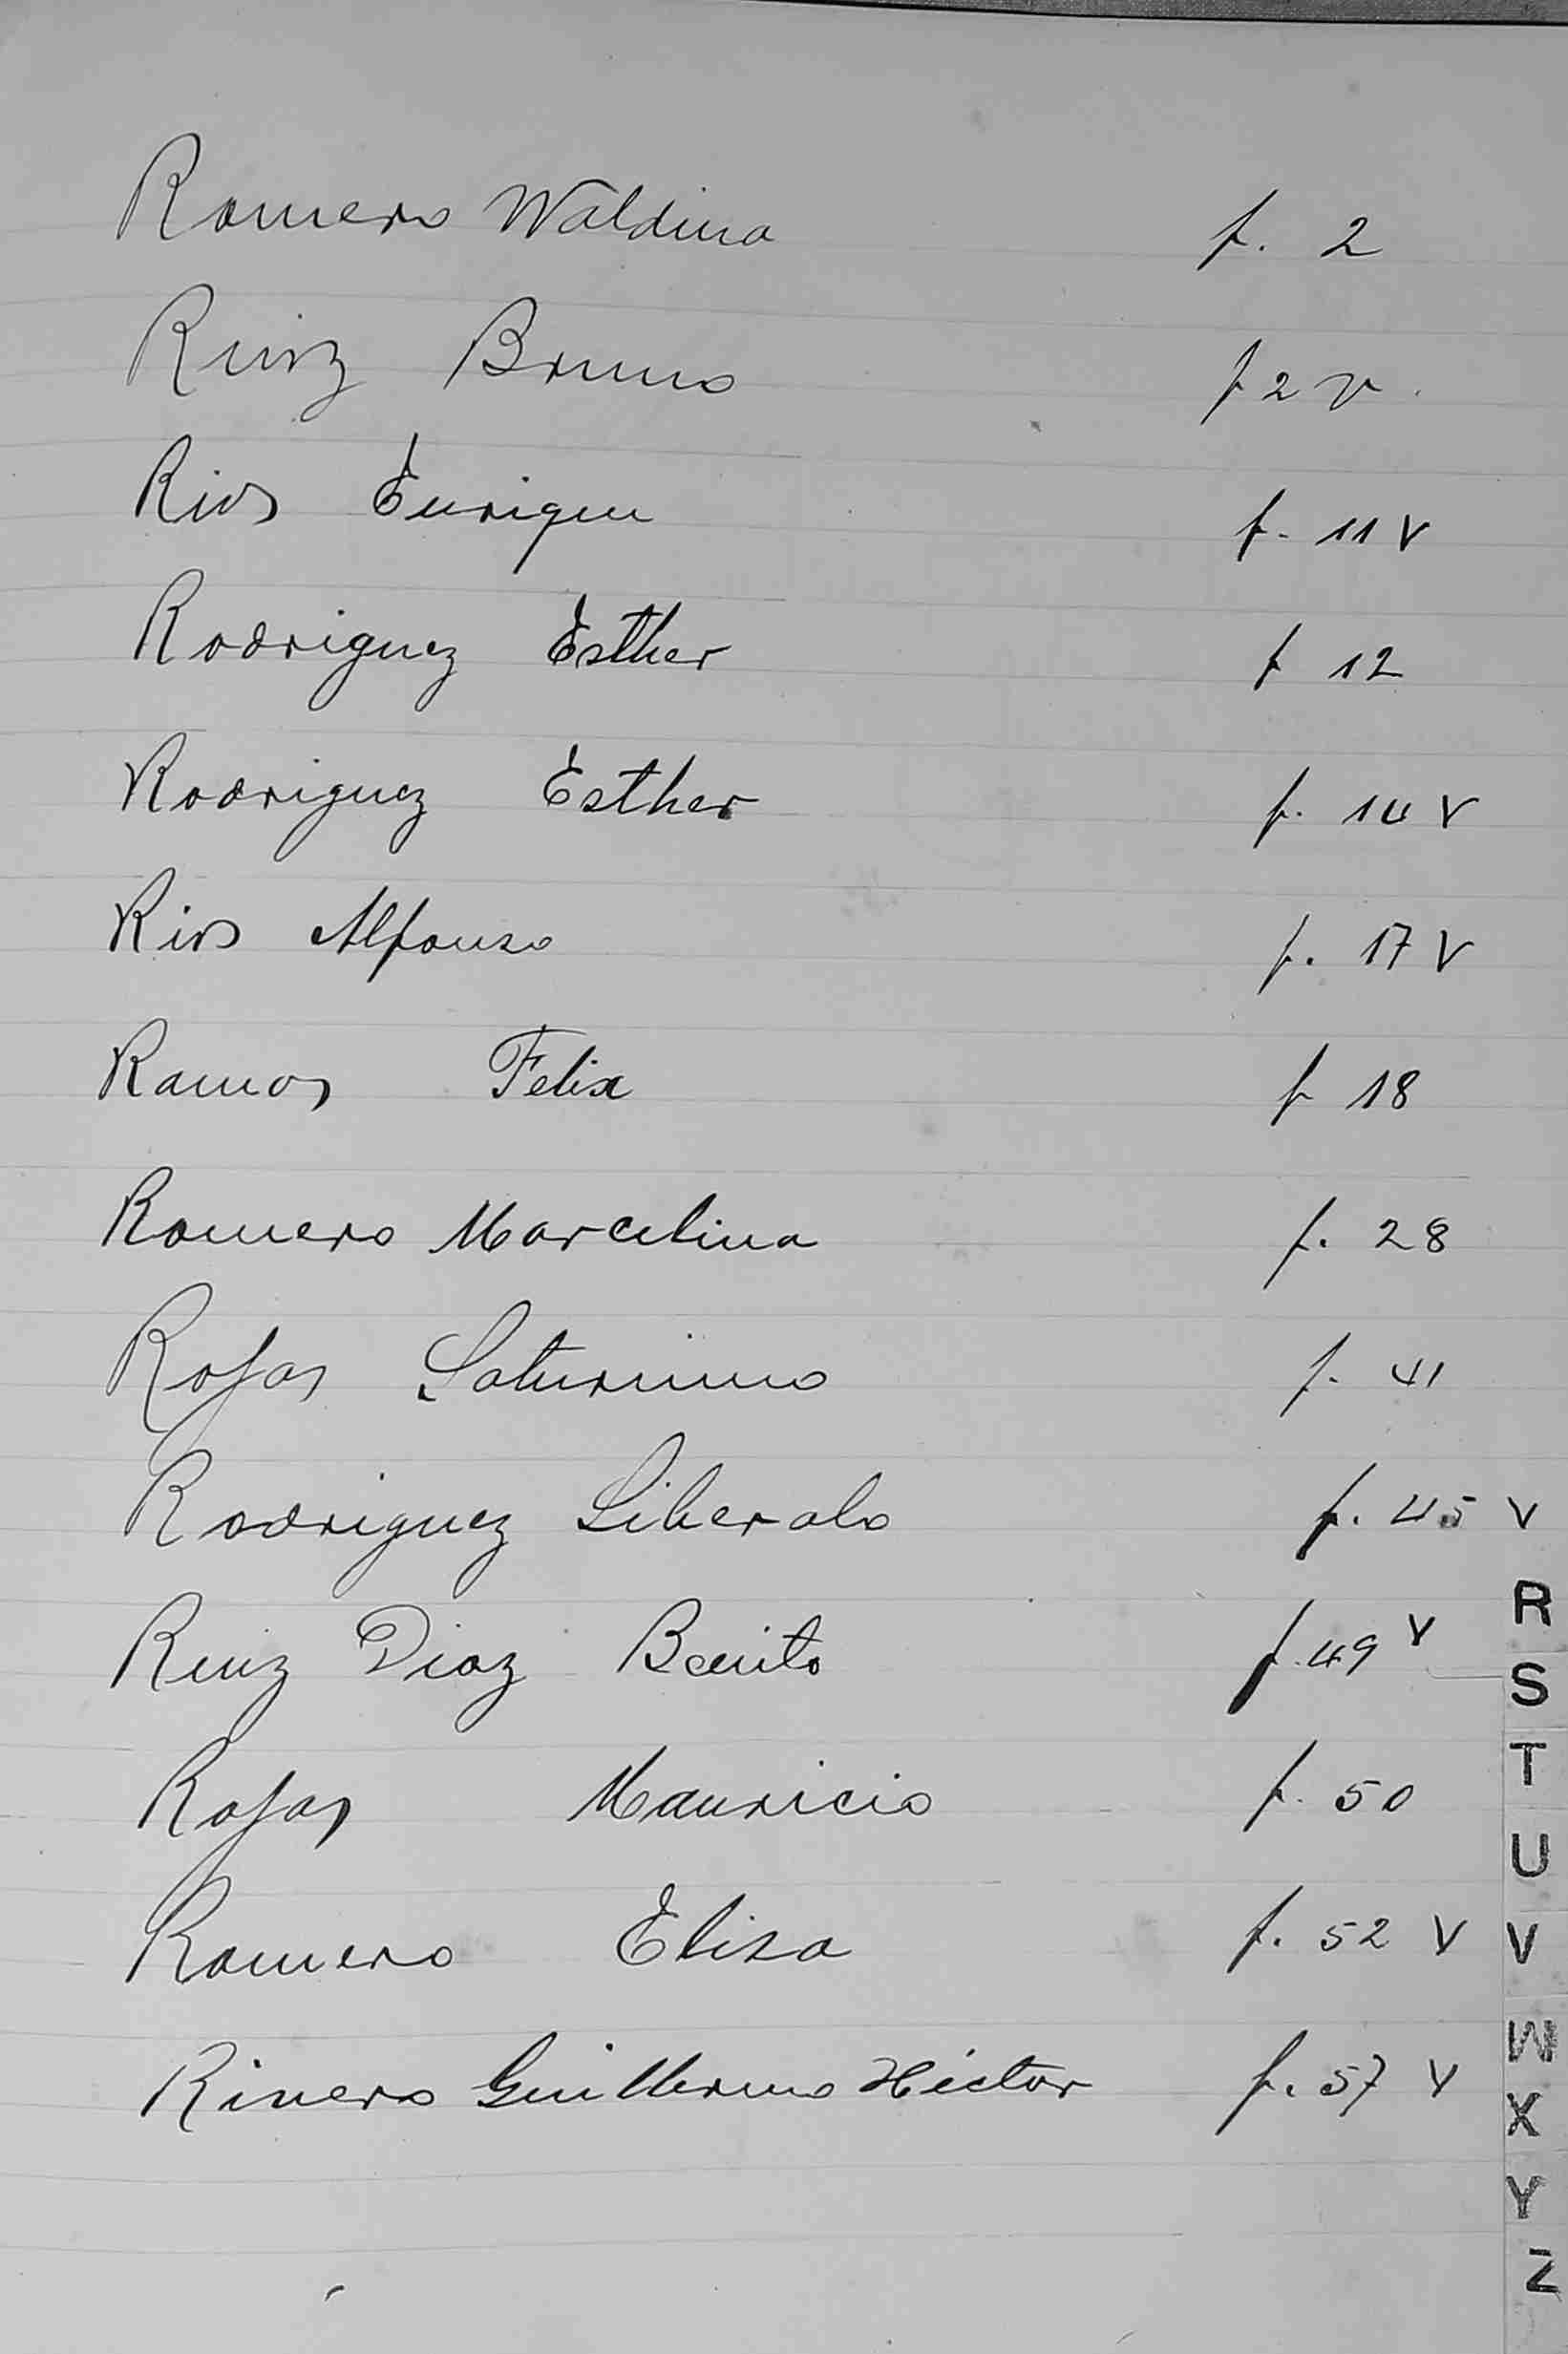 Romero Waldina f. 2
Ruiz Bruno f 2 v.
Rios Enrique f. 11 v
Rodriguez Esther f 12
Rodriguez Esther f. 14 v
Rios Alfonso f. 17 v
Ramos Felix f 18
Romero Marcelina f. 28
Rojas Saturnino f. 41
Rodriguez Liberato f. 45 v
Ruiz Diaz Benito f. 49 v
Rojas Mauricio f. 50
Romero Elisa f. 52 v
Rivero Guillermo Héctor f. 57 v
R
S
T
U
V
W
X
Y
Z